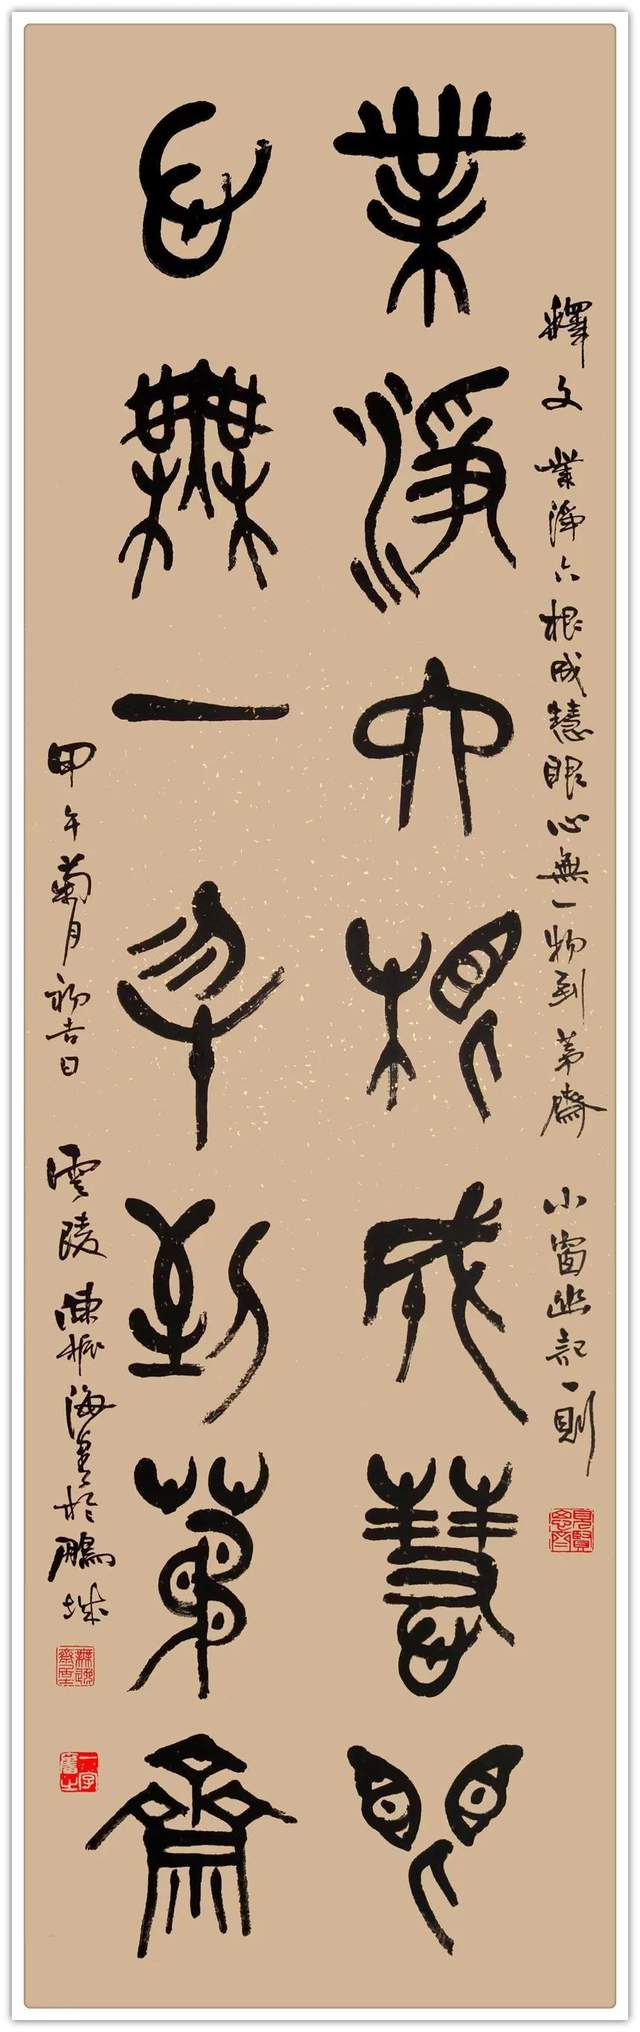 釋文 業淨六根成慧眼心無一物到茅齋 小窗幽記一則
見賢思齊
業淨六根成慧眼
心無一物到茅齋
甲午菊月初吉日 雲陵陳振海書於鵬城